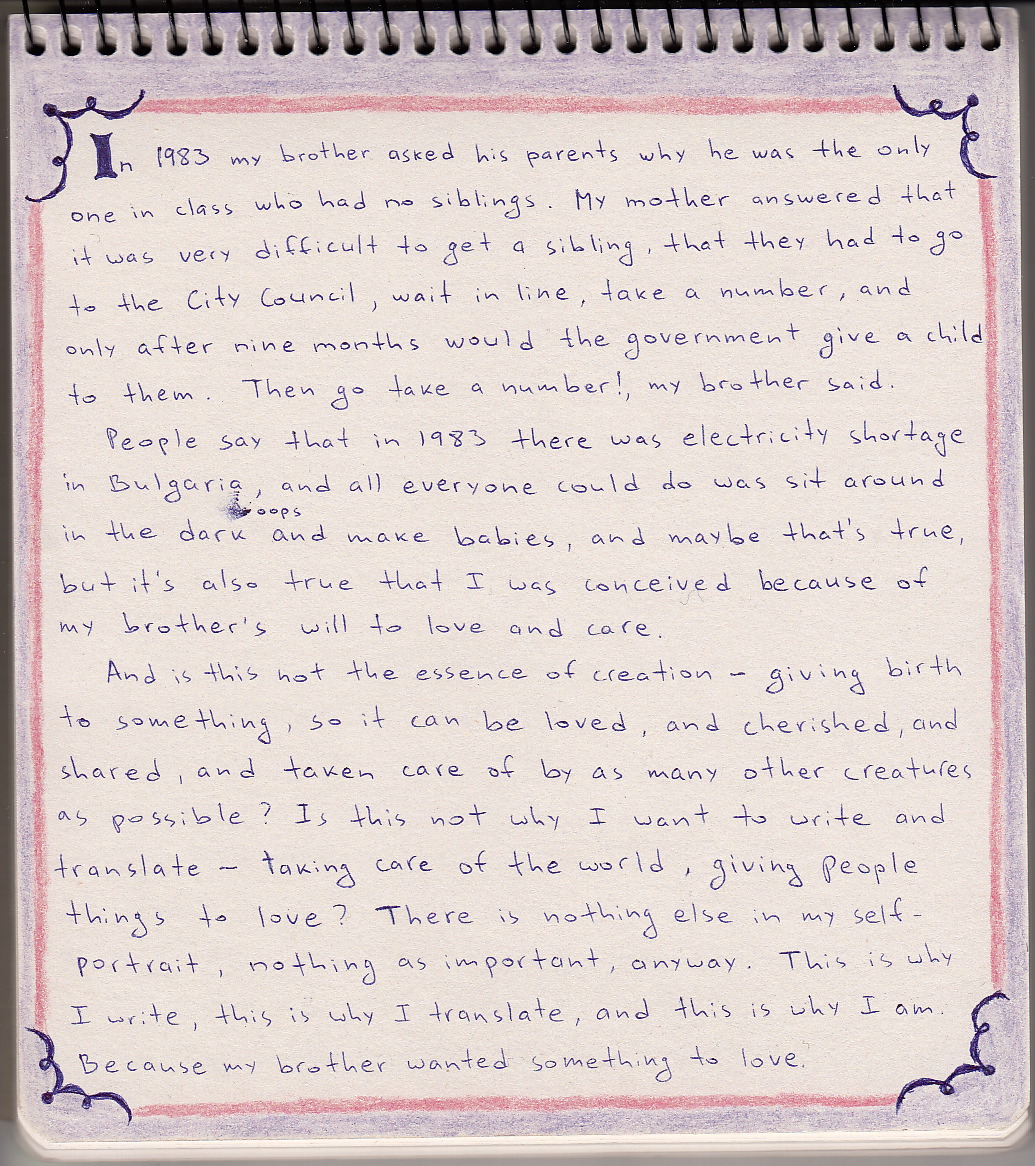 In 1983 my brother asked his parents why he was the only
one in class who had no siblings. My mother answered that
it was very difficult to get a sibling, that they had to go
to the City Council, wait in line, take a number, and
only after nine months would the government give a child
to them. Then go take a number!, my brother said.
People say that in 1983 there was electricity shortage
in Bulgaria, and all everyone could do was sit around
oops
in the dark and make babies, and maybe that's true,
but it's also true that I was conceived because of
my brother's will to love and care.
And is this not the essence of creation – giving birth
to something, so it can be loved, and cherished, and
shared, and taken care of by as many other creatures
as possible? Is this not why I want to write and
translate – taking care of the world, giving people
things to love? There is nothing else in my self-
portrait, nothing as important, anyway. This is why
I write, this is why I translate, and this is why I am.
Because my brother wanted something to love.